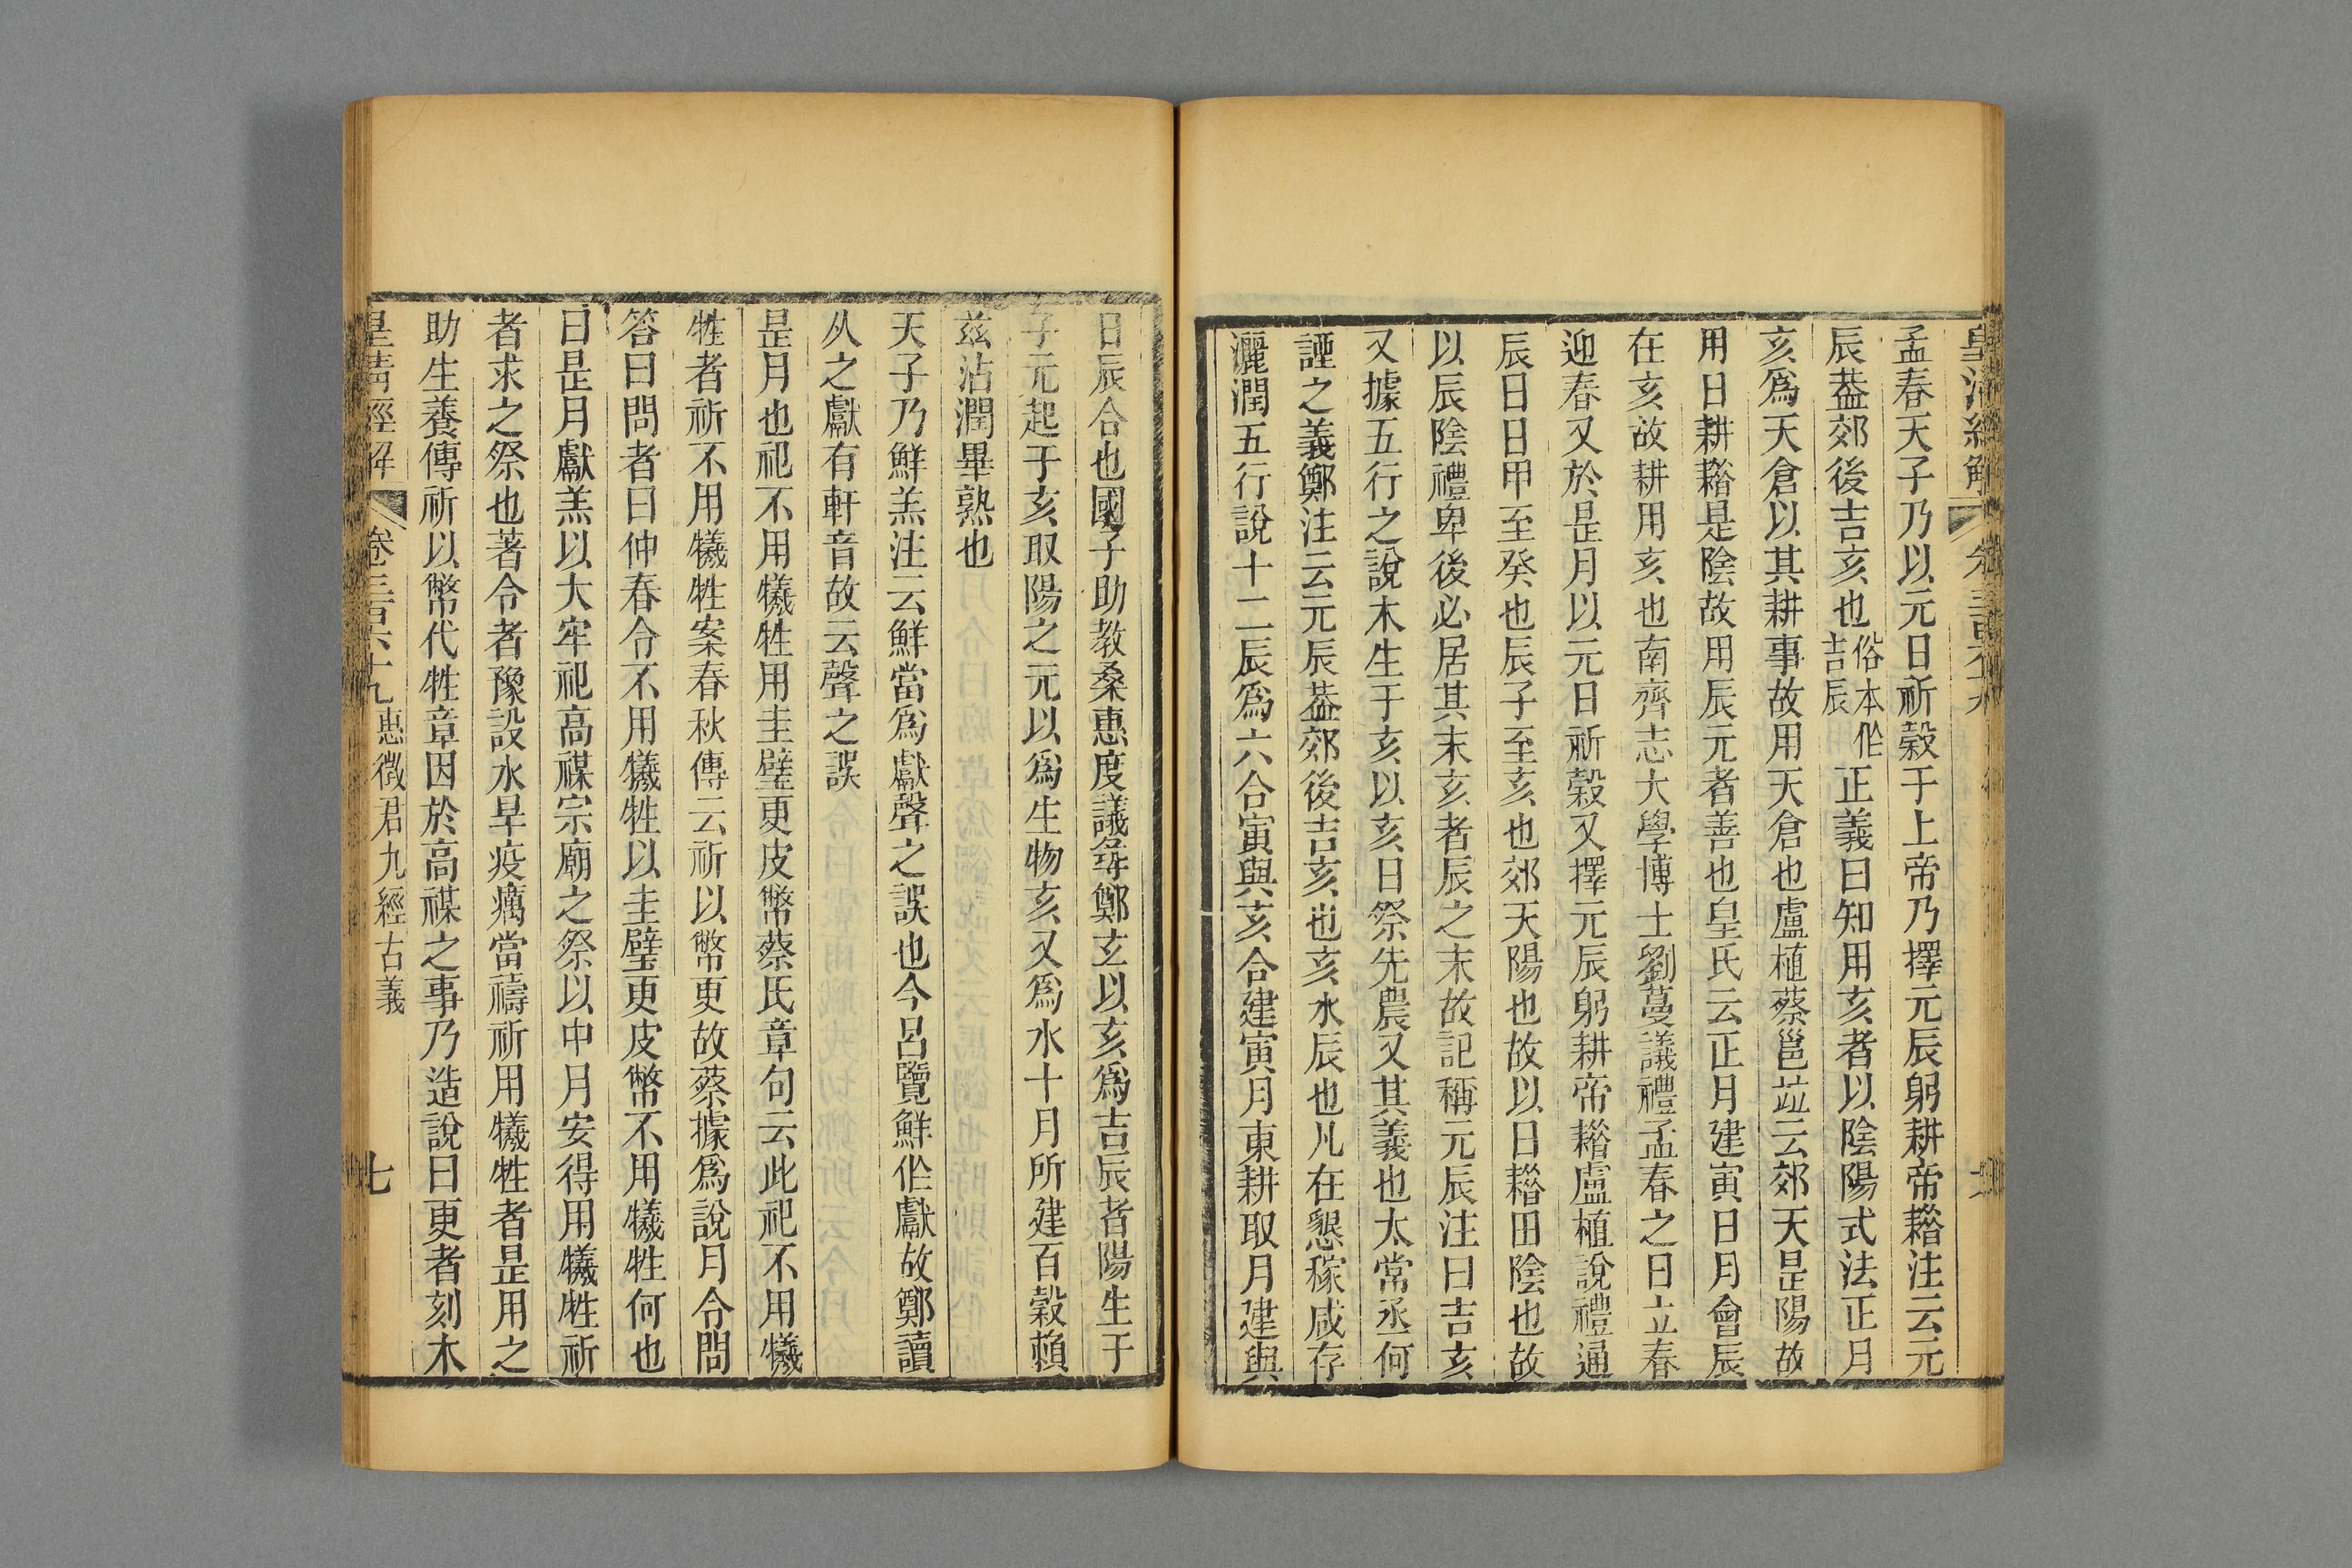 孟春天子乃以元日祈穀于上帝乃擇元辰躬耕帝耤注云元
辰葢郊後吉亥也俗本作吉辰正義曰知用亥者以陰陽式法正月
亥爲天倉以其耕事故用天倉也盧植蔡邕竝云郊天是陽故
用日耕耤是陰故用辰元者善也皇氏云正月建寅日月會辰
在亥故耕用亥也南齊志大學博士劉蔓議禮孟春之日立春
迎春又於是月以元日祈穀又擇元辰躬耕帝耤盧植說禮通
辰日日甲至癸也辰子至亥也郊天陽也故以日耤田陰也故
以辰陰禮卑後必居其末亥者辰之末故記稱元辰注曰吉亥
又據五行之說木生于亥以亥日祭先農又其義也太常丞何
諲之義鄭注云元辰葢郊後吉亥也亥水辰也凡在懇稼咸存
灑潤五行說十二辰爲六合寅與亥合建寅月東耕取月建與
日辰合也國子助教桑惠度議尋鄭玄以亥爲吉辰者陽生于
子元起于亥取陽之元以爲生物亥又爲水十月所建百穀賴
茲沾潤畢熟也
天子乃鮮羔注云鮮當爲獻聲之誤也今呂覽鮮作獻故鄭讀
从之獻有軒音故云聲之誤
是月也祀不用犧牲用圭璧更皮幣蔡氏章句云此祀不用犧
牲者祈不用犧牲案春秋傳云祈以幣更故蔡據爲說月令問
答曰問者曰仲春令不用犧牲以圭璧更皮幣不用犧牲何也
曰是月獻羔以大牢祀高禖宗廟之祭以中月安得用犧牲祈
者求之祭也著令者豫設水旱疫癘當禱祈用犧牲者是用之
助生養傳祈以幣代牲章因於高禖之事乃造說曰更者刻木
皇清經解 卷三百六十九 惠徵君九經古義 七